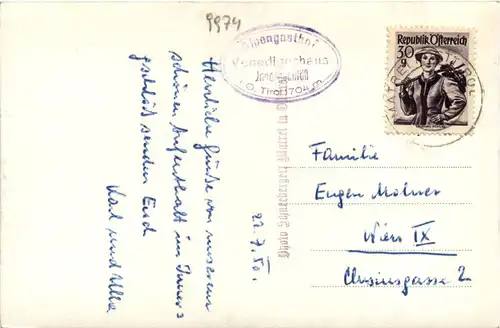 9974
Alpengasthof
Venedigerhaus
Innergschlöß
i. O. Tirol 1704 m
Republik Österreich
30
g
Herzliche Grüße von unserem
schönen Aufenthalt im Inner=
gschlöß senden Euch
Karl und Ulla
22.7.50.
Familie
Eugen Molner
Wien IX
Clusiusgasse 2